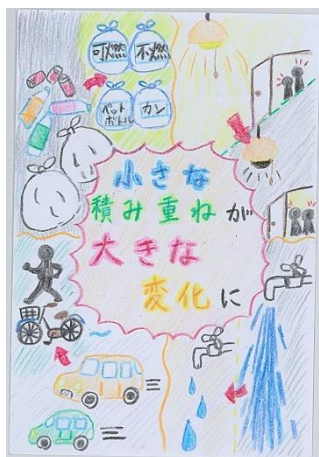 可燃
不燃
ペット
ボトル
カン
小さな
積み重ねが
大きな
変化に